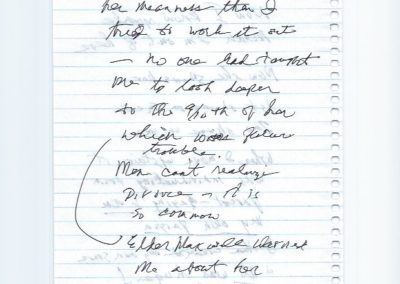 her meanness than I
tried to work it out
— no one had taught
me to look deeper
to the of her
which was future
trouble.
Men cant realize
Divorce — it is
so common
Elsa Maxwell Warned
Me about her